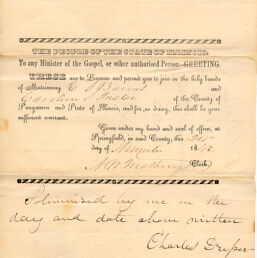 THE PEOPLE OF THE STATE OF ILLINOIS.
To any Minister of the Gospel, or other authorised Person—GREETING.
THESE are to License and permit you to join in the holy bands
of Matrimony
Caroline of the County of
Sangamon and State of Illinois, and for so doing, this shall be your
sufficient warrant.
Given under my hand and seal of office, at
Springfield, in said County, this
day of 18
Clerk.
Solemnized by me on the
day and date above written
Charles Dresser